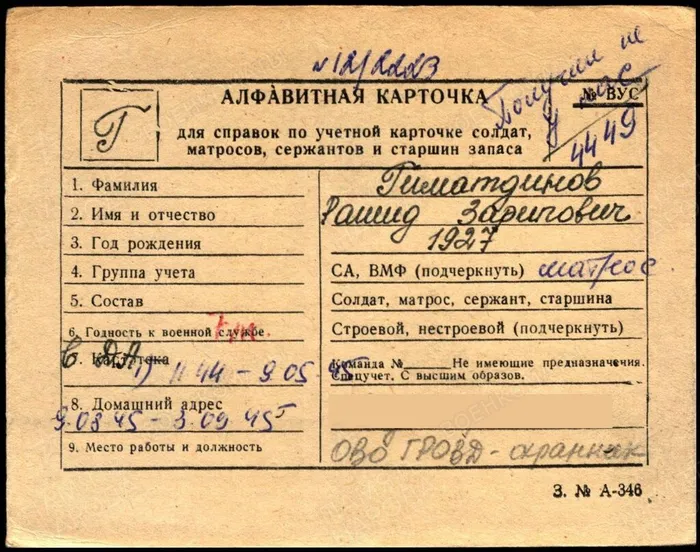 № 12/2223
Получил не
у нас
Г
АЛФАВИТНАЯ КАРТОЧКА
для справок по учетной карточке солдат,
матросов, сержантов и старшин запаса
№ ВУС
4449
1. Фамилия Гиматдинов
2. Имя и отчество Рашид Зарипович
3. Год рождения 1927
4. Группа учета СА, ВМФ (подчеркнуть) матрос
5. Состав Солдат, матрос, сержант, старшина
6. Годность к военной службе Строевой, нестроевой (подчеркнуть)
7. Картотека Команда № Не имеющие предназначения.
Спецучет. С высшим образов.
в ДА
1) 11 44 – 9.05.45
8. Домашний адрес
9.08 45 – 3.09 45
9. Место работы и должность ОВО ГРОВД - охранник
З. № А-346